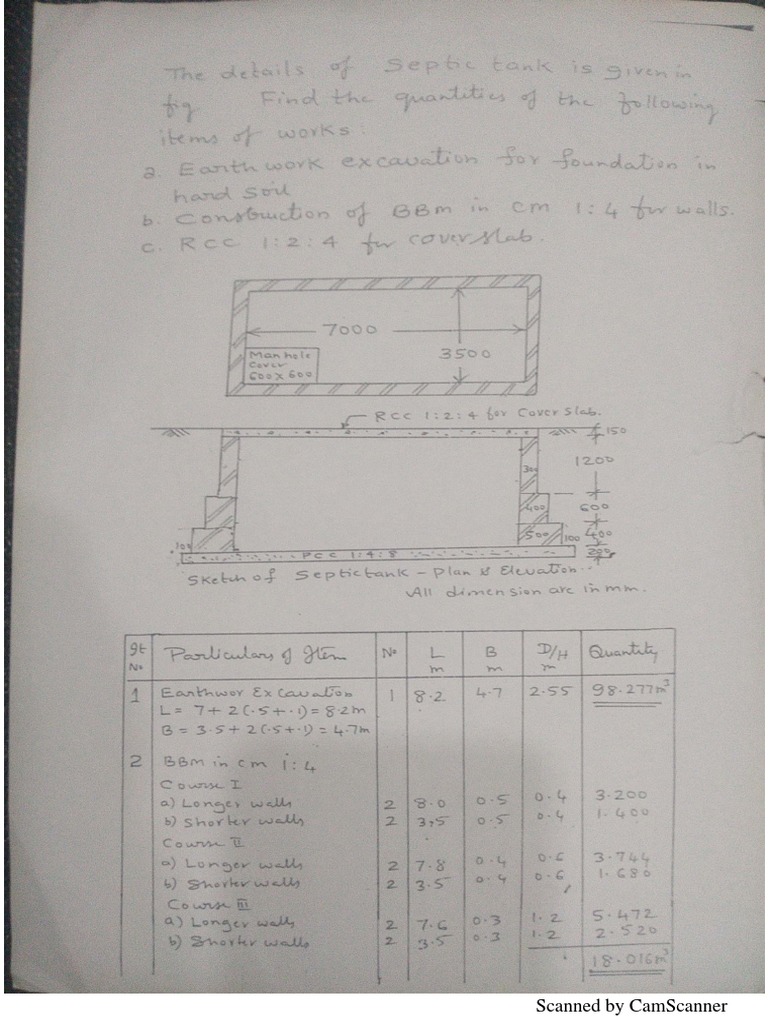 The details of Septic tank is given in
fig Find the quantities of the following
items of works:
a. Earth work excavation for foundation in
hard soil
b. Construction of BBM in cm 1:4 for walls.
c. RCC 1:2:4 for cover slab.
7000
3500
Manhole
Cover
600 x 600
RCC 1:2:4 for Cover Slab.
150
1200
300
400
600
500
100
400
100
PCC 1:4:8
200
Sketch of Septic tank - Plan & Elevation.
All dimension are in mm.
It No Particulars of Item No L m B m D/H m Quantity
1 Earthwor Excavation 1 8.2 4.7 2.55 98.277m³
L = 7+2(.5+.1) = 8.2m
B = 3.5+2(.5+.1) = 4.7m
2 BBM in cm 1:4
Course I
a) Longer walls 2 8.0 0.5 0.4 3.200
b) Shorter walls 2 3.5 0.5 0.4 1.400
Course II
a) Longer walls 2 7.8 0.4 0.6 3.744
b) Shorter walls 2 3.5 0.4 0.6 1.680
Course III
a) Longer walls 2 7.6 0.3 1.2 5.472
b) Shorter walls 2 3.5 0.3 1.2 2.520
18.016m³
Scanned by CamScanner